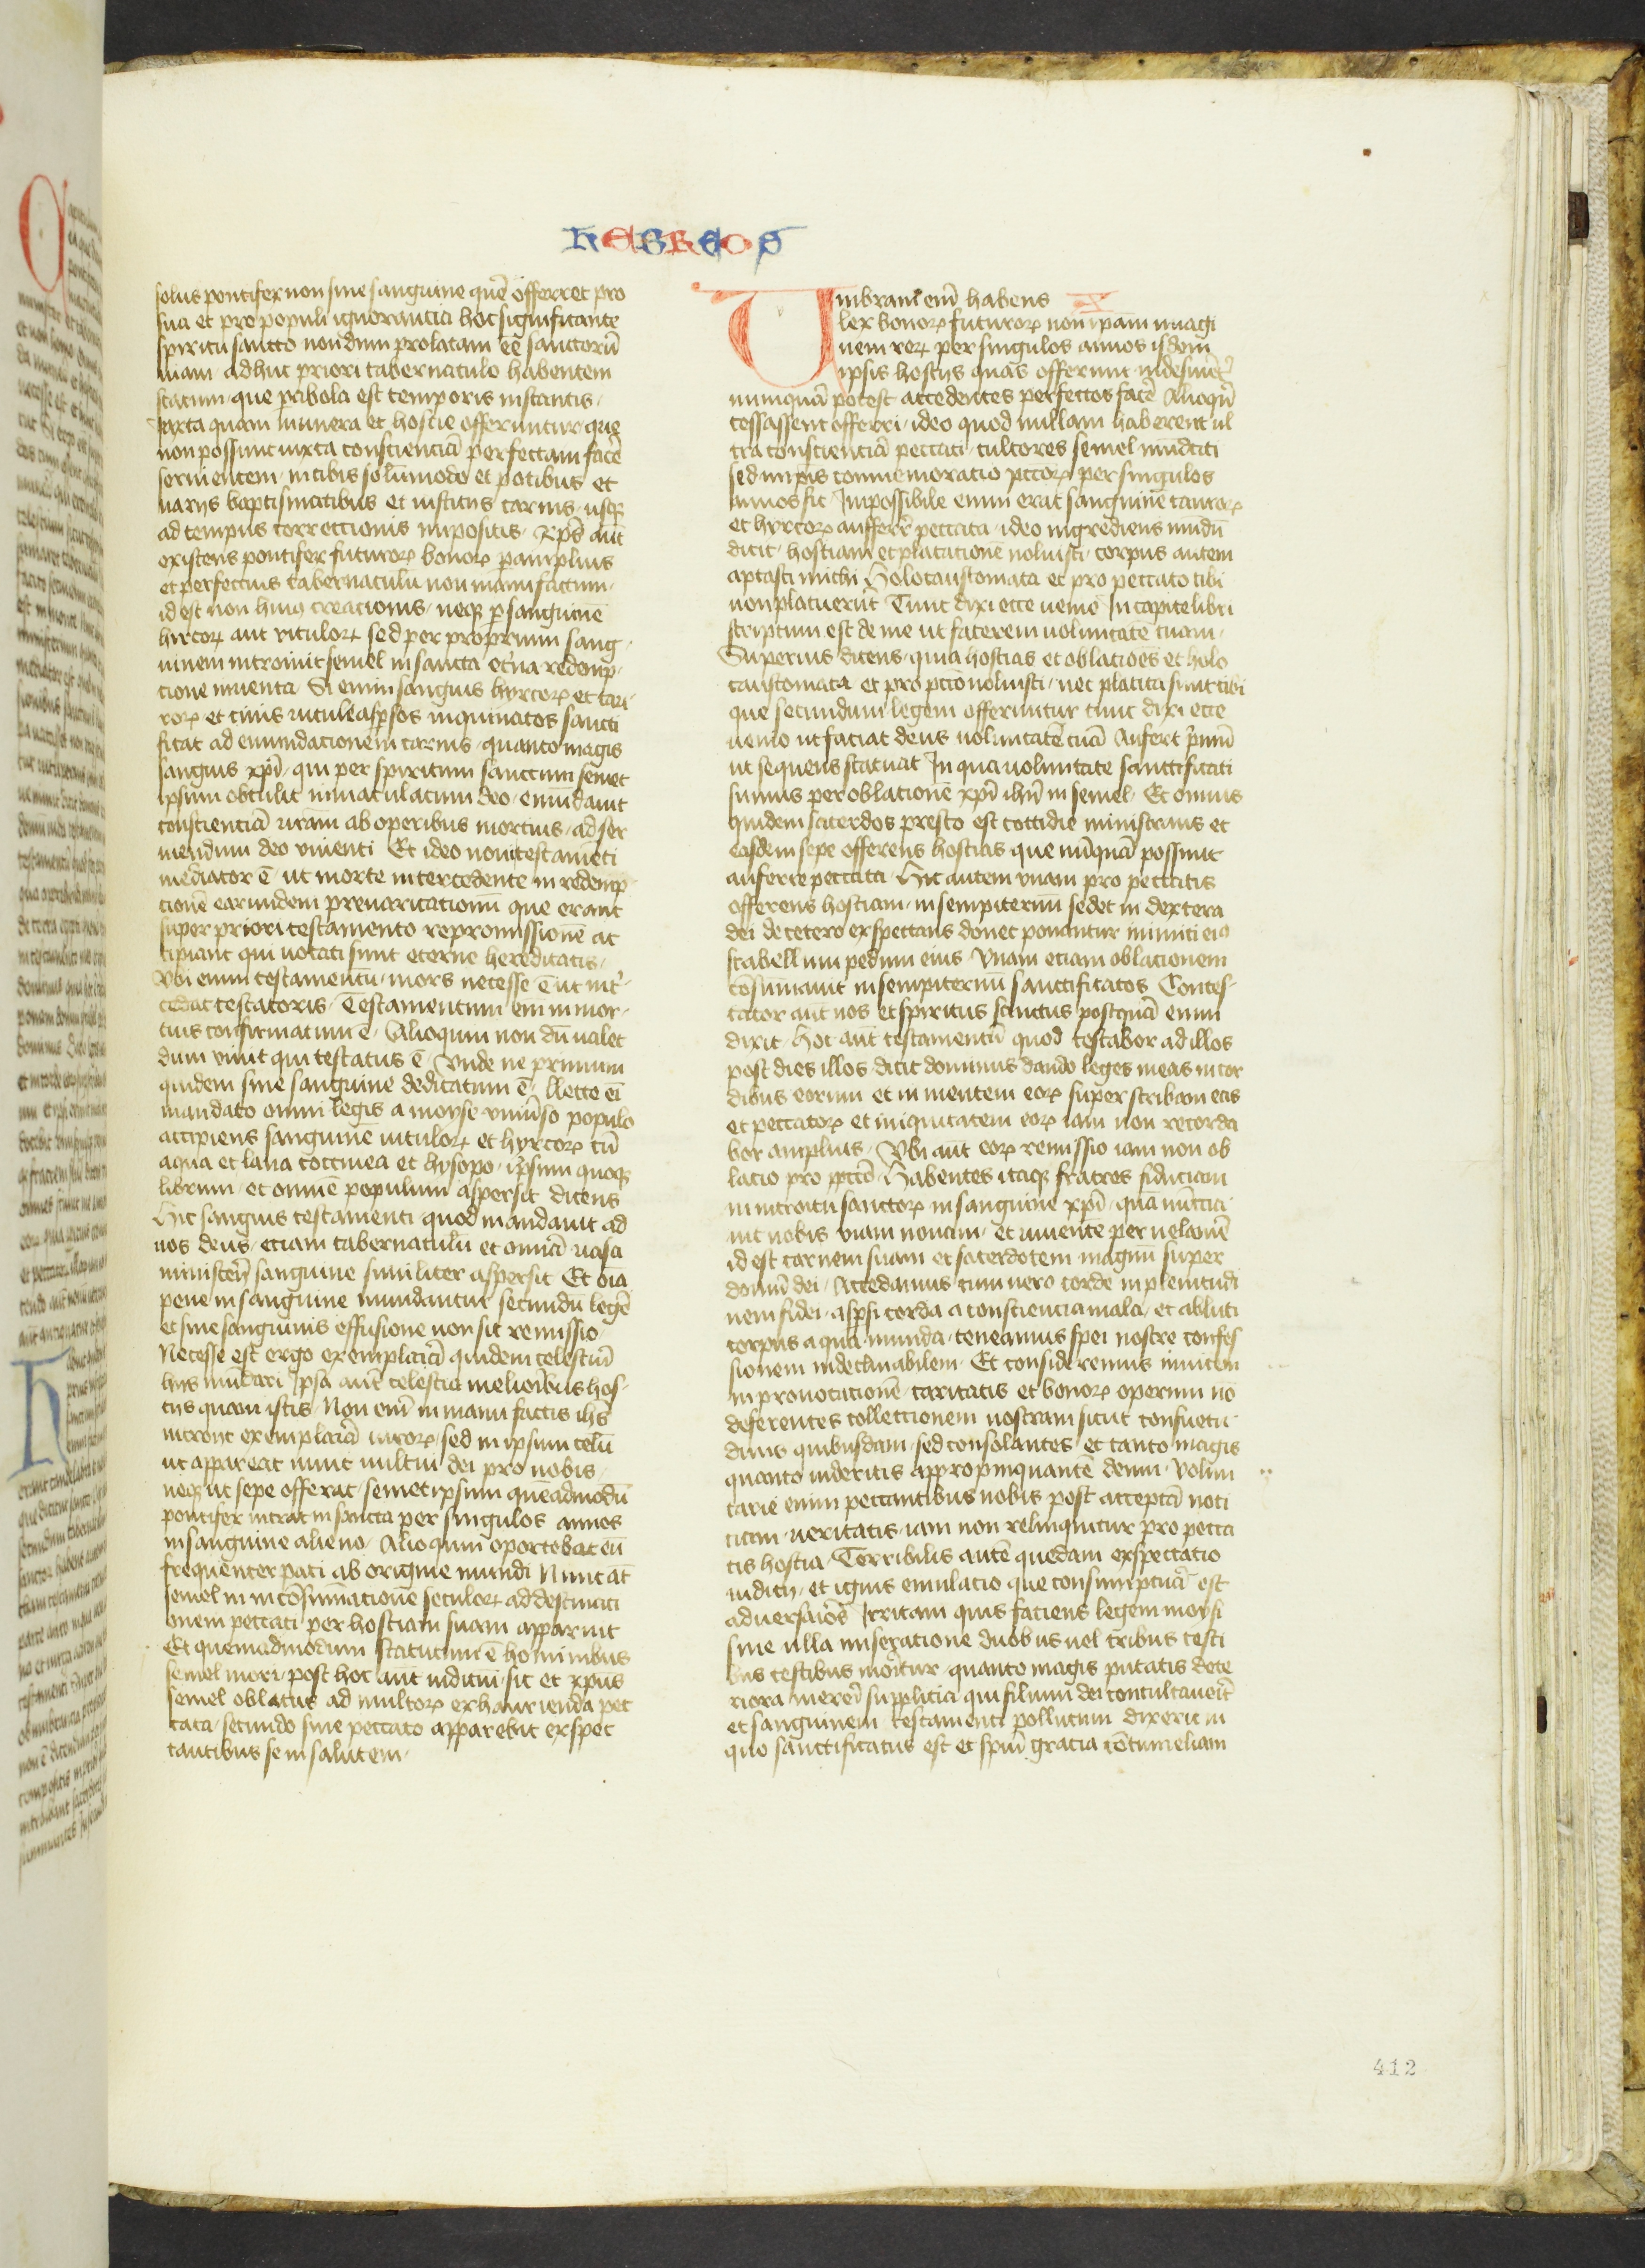 HEBREOS
solus pontifex non sine sanguine quē offerret pro
sua et pro populi ignorantia hoc significante
spiritu sancto nondum prolatam eē sanctorū
uiam adhuc priori tabernaculo habentem
statum que pabola est temporis instantis
Juxta quam munera et hostie offeruntur que
non possunt iuxta conscienciā perfectam facē
seruientem in cibis solūmodo et potibus et
uarijs baptismatibus et iusticijs carnis usq̄
ad tempus correctionis impositis Xp̄s aūt
existens pontifex futuroꝝ bonoꝝ p amplius
et perfectius tabernaculū non manufactum
id est non huiꝰ creacionis neq̄ p sanguinē
hircoꝝ aut vituloꝝ sed per proprium sang
uinem introiuit semel in sancta et̄na redemp
cione inuenta Si enim sanguis hyrcoꝝ et tau
roꝝ et cinis uitule aspsos inquinatos sancti
ficat ad emundacionem carnis quanto magis
sanguis xp̄i qui per spiritum sanctum semet
ipsum obtulit inmaculatum deo emūdauit
conscienciā uram ab operibus mortuis ad ser
uiendum deo viuenti Et ideo noui testamēti
mediator ē ut morte intercedente in redemp
tionē earundem preuaricationū que erant
super priori testamento repromissionē ac
cipiant qui uocati sunt eterne hereditatis
Vbi enim testamentū mors necesse ē ut int̄
cedat testatoris Testamentum em̄ in mor
tuis confirmatum ē Alioquin non dū ualet
dum viuit qui testatus ē Vnde ne primum
quidem sine sanguine dedicatum ē llecto ei
mandato omni legis a moyse vniu̇so populo
accipiens sanguinē uituloꝝ et hyrcoꝝ cū
aqua et lana coccinea et hysopo ipsum quoq̄
librum et omnē populum aspersit dicens
Hic sanguis testamenti quod mandauit ad
uos deus etiam tabernaculū et omniā uasa
ministerij sanguine similiter aspersit Et oīa
pene in sanguine mundantur secundū legē
et sine sanguinis effusione non fit remissio
Necesse est ergo exemplariā quidem celestiū
hijs mūdari Ipsa aūt celestia melioribus hos
tijs quam istis Non em̄ in manu factis ihs̄
introijt exemplariā ueroꝝ sed in ipsum celū
ut appareat nunc uultui dei pro nobis
neq̄ ut sepe offerat semet ipsum quēadmodū
pontifex intrat in sancta per singulos annos
in sanguine alieno Alioquin oportebat eū
frequenter pati ab origine mundi Nunc aūt
semel in in cōsūmationē seculoꝝ ad destituci
onem peccati per hostiam suam apparuit
Et quemadmodum statutum ē hominibus
semel mori post hoc aut iudiciū sic et xp̄us
semel oblatus ad multoꝝ exhaurienda pec
cata secundo sine peccato apparebit exspec
tantibus se in salutem
Vmbram em̄ habens X
lex bonoꝝ futuroꝝ non ip̄am imagi
nem reꝝ per singulos annos isdem
ipsis hostijs quas offerunt indesinēt̄
numquā potest accedentes perfectos facē Alioqn̄
cessassent offerri ideo quod nullam haberent ul
tra conscienciā peccati cultores semel mūdati
sed in ip̄is commemoratio pccoꝝ per singulos
annos fit Impossibile enim erat sanguinē tauroꝝ
et hyrcoꝝ aufferrē peccata ideo ingrediens mūdū
dicit hostiam et placationē noluisti corpus autem
aptasti michi Holocaustomata et pro peccato tibi
non placuerūt Tunc dixi ecce uenio In capite libri
scriptum est de me ut facerem uoluntatē tuam
Superius dicens quia hostias et oblatiōes et holo
caustomata et pro pccō noluisti nec placita sunt tibi
que secundum legem offeruntur tunc dixi ecce
uenio ut faciat deus uoluntatē tuā Aufert p̄mū
ut sequens statuat In qua uoluntate sanctificati
sumus per oblationē xp̄i ihū in semel Et omnis
quidem sacerdos presto est cottidie ministrans et
easdem sepe offerens hostias que nūquā possunt
auferre peccata Hic autem vnam pro peccatis
offerens hostiam in sempiternū sedet in dextera
dei de cetero exspectans donec ponantur inimici eiꝰ
scabellum pedum eius Vnam etiam oblationem
cōsumauit in sempiternū sanctificatos Contes
tatur aūt nos et spiritus sanctus postquā enim
dixit Hoc aūt testamentū quod testabor ad illos
post dies illos dicit dominus dando leges meas in cor
dibus eorum et in mentem eoꝝ superscribam eas
et peccatoꝝ et iniquitatem eoꝝ iam non recorda
bor amplius Vbi aūt eoꝝ remissio iam non ob
lacio pro pccō Habentes itaq̄ fratres fiduciam
in introitu sanctoꝝ in sanguine xp̄i quā inicia
uit nobis viam nouam et uiuente per uelamē
id est carnem suam et sacerdotem magnū super
domū dei Accedamus cum uero corde in plenitudi
nem fidei aspsi corda a consciencia mala et abluti
corpus aqua munda teneamus spei nostre confes
sionem indeclinabilem Et consideremus inuicem
in prouocationē caritatis et bonoꝝ operum nō
deferentes collectionem nostram sicut consuetu
dinis quibusdam sed consolantes et tanto magis
quanto uideritis appropinquantē deum Volun
tarie enim peccantibus nobis post acceptā noti
tiam ueritatis iam non relinquitur pro pecca
tis hostia Terribilis autē quedam exspectatio
iudicij et ignis emulacio que consumptuā est
aduersariōs Irritam quis faciens legem moysi
sine ulla miseratione duobus uel tribus testi
bus testibus moritur quanto magis putatis dete
riora mererī supplicia qui filium dei conculcaueīt
et sanguinem testamenti pollutum dixerit in
quo sanctificatus est et spiui gracia cōtumeliam
412